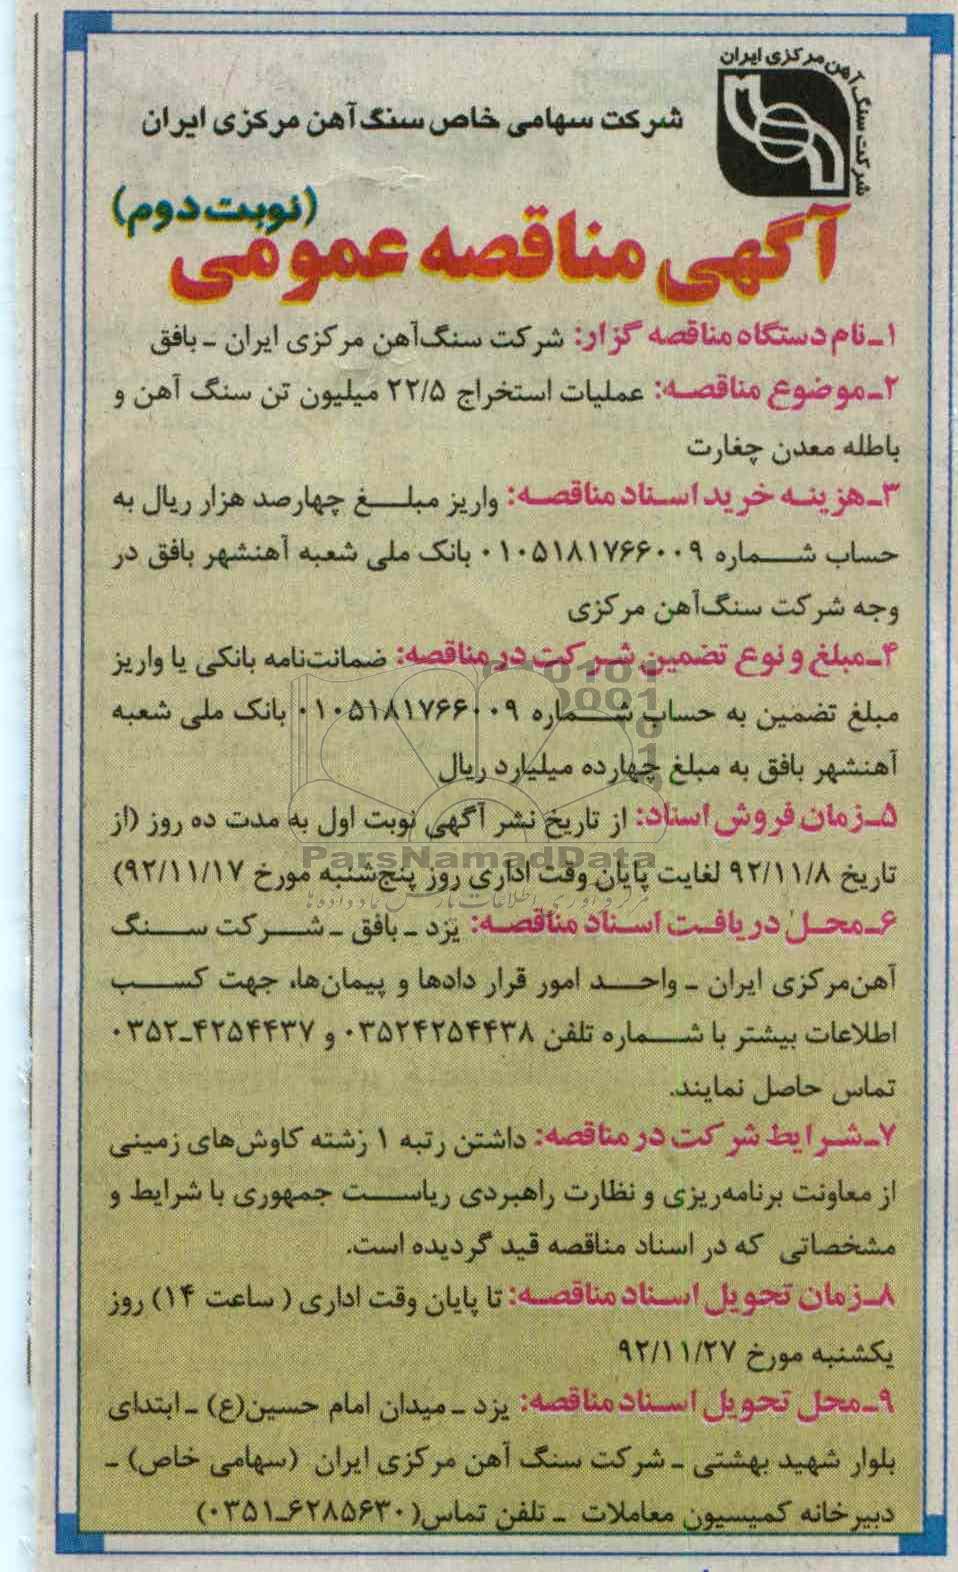 شرکت سنگ آهن مرکزی ایران
شرکت سهامی خاص سنگ آهن مرکزی ایران
(نوبت دوم)
آگهی مناقصه عمومی
۱ـ نام دستگاه مناقصه گزار: شرکت سنگ‌آهن مرکزی ایران ـ بافق
۲ـ موضوع مناقصه: عملیات استخراج ۲۲/۵ میلیون تن سنگ آهن و
باطله معدن چغارت
۳ـ هزینه خرید اسناد مناقصه: واریز مبلغ چهارصد هزار ریال به
حساب شماره ۰۱۰۵۱۸۱۷۶۶۰۰۹ بانک ملی شعبه آهنشهر بافق در
وجه شرکت سنگ‌آهن مرکزی
۴ـ مبلغ و نوع تضمین شرکت در مناقصه: ضمانت‌نامه بانکی یا واریز
مبلغ تضمین به حساب شماره ۰۱۰۵۱۸۱۷۶۶۰۰۹ بانک ملی شعبه
آهنشهر بافق به مبلغ چهارده میلیارد ریال
۵ـ زمان فروش اسناد: از تاریخ نشر آگهی نوبت اول به مدت ده روز (از
تاریخ ۹۲/۱۱/۸ لغایت پایان وقت اداری روز پنج‌شنبه مورخ ۹۲/۱۱/۱۷)
ParsNamadData
۶ـ محل دریافت اسناد مناقصه: یزد ـ بافق ـ شرکت سنگ
آهن‌مرکزی ایران ـ واحد امور قرار دادها و پیمان‌ها، جهت کسب
اطلاعات بیشتر با شماره تلفن ۰۳۵۲۴۲۵۴۴۳۸ و ۴۲۵۴۴۳۷ـ۰۳۵۲
تماس حاصل نمایند.
۷ـ شرایط شرکت در مناقصه: داشتن رتبه ۱ رشته کاوش‌های زمینی
از معاونت برنامه‌ریزی و نظارت راهبردی ریاست جمهوری با شرایط و
مشخصاتی که در اسناد مناقصه قید گردیده است.
۸ـ زمان تحویل اسناد مناقصه: تا پایان وقت اداری ( ساعت ۱۴) روز
یکشنبه مورخ ۹۲/۱۱/۲۷
۹ـ محل تحویل اسناد مناقصه: یزد ـ میدان امام حسین(ع) ـ ابتدای
بلوار شهید بهشتی ـ شرکت سنگ آهن مرکزی ایران (سهامی خاص) ـ
دبیرخانه کمیسیون معاملات ـ تلفن تماس( ۶۲۸۵۶۳۰ـ۰۳۵۱)